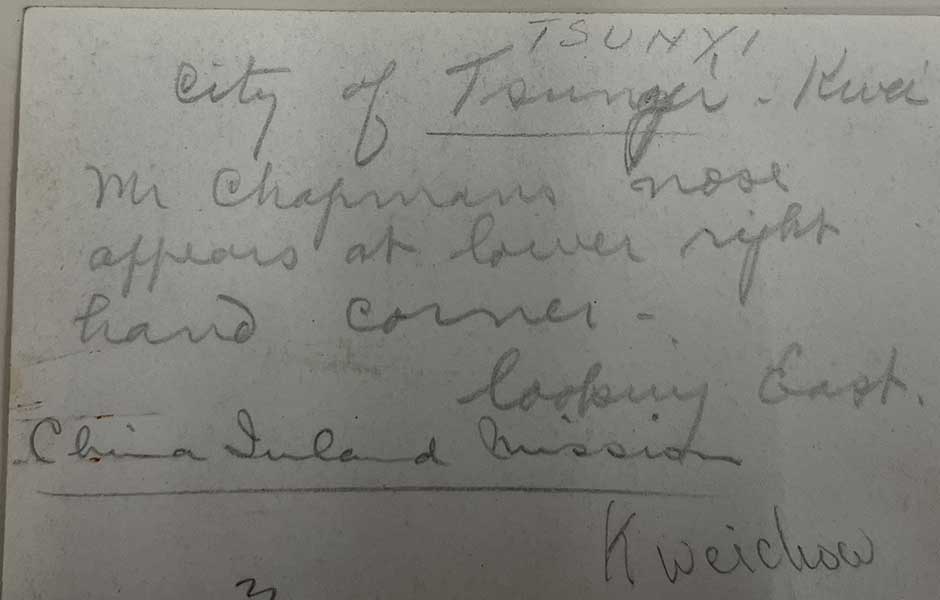 TSUNYI
City of Tsungi - Kwei
Mr Chapmans nose
appears at lower right
hand corner -
looking East.
China Inland Mission
Kweichow
3